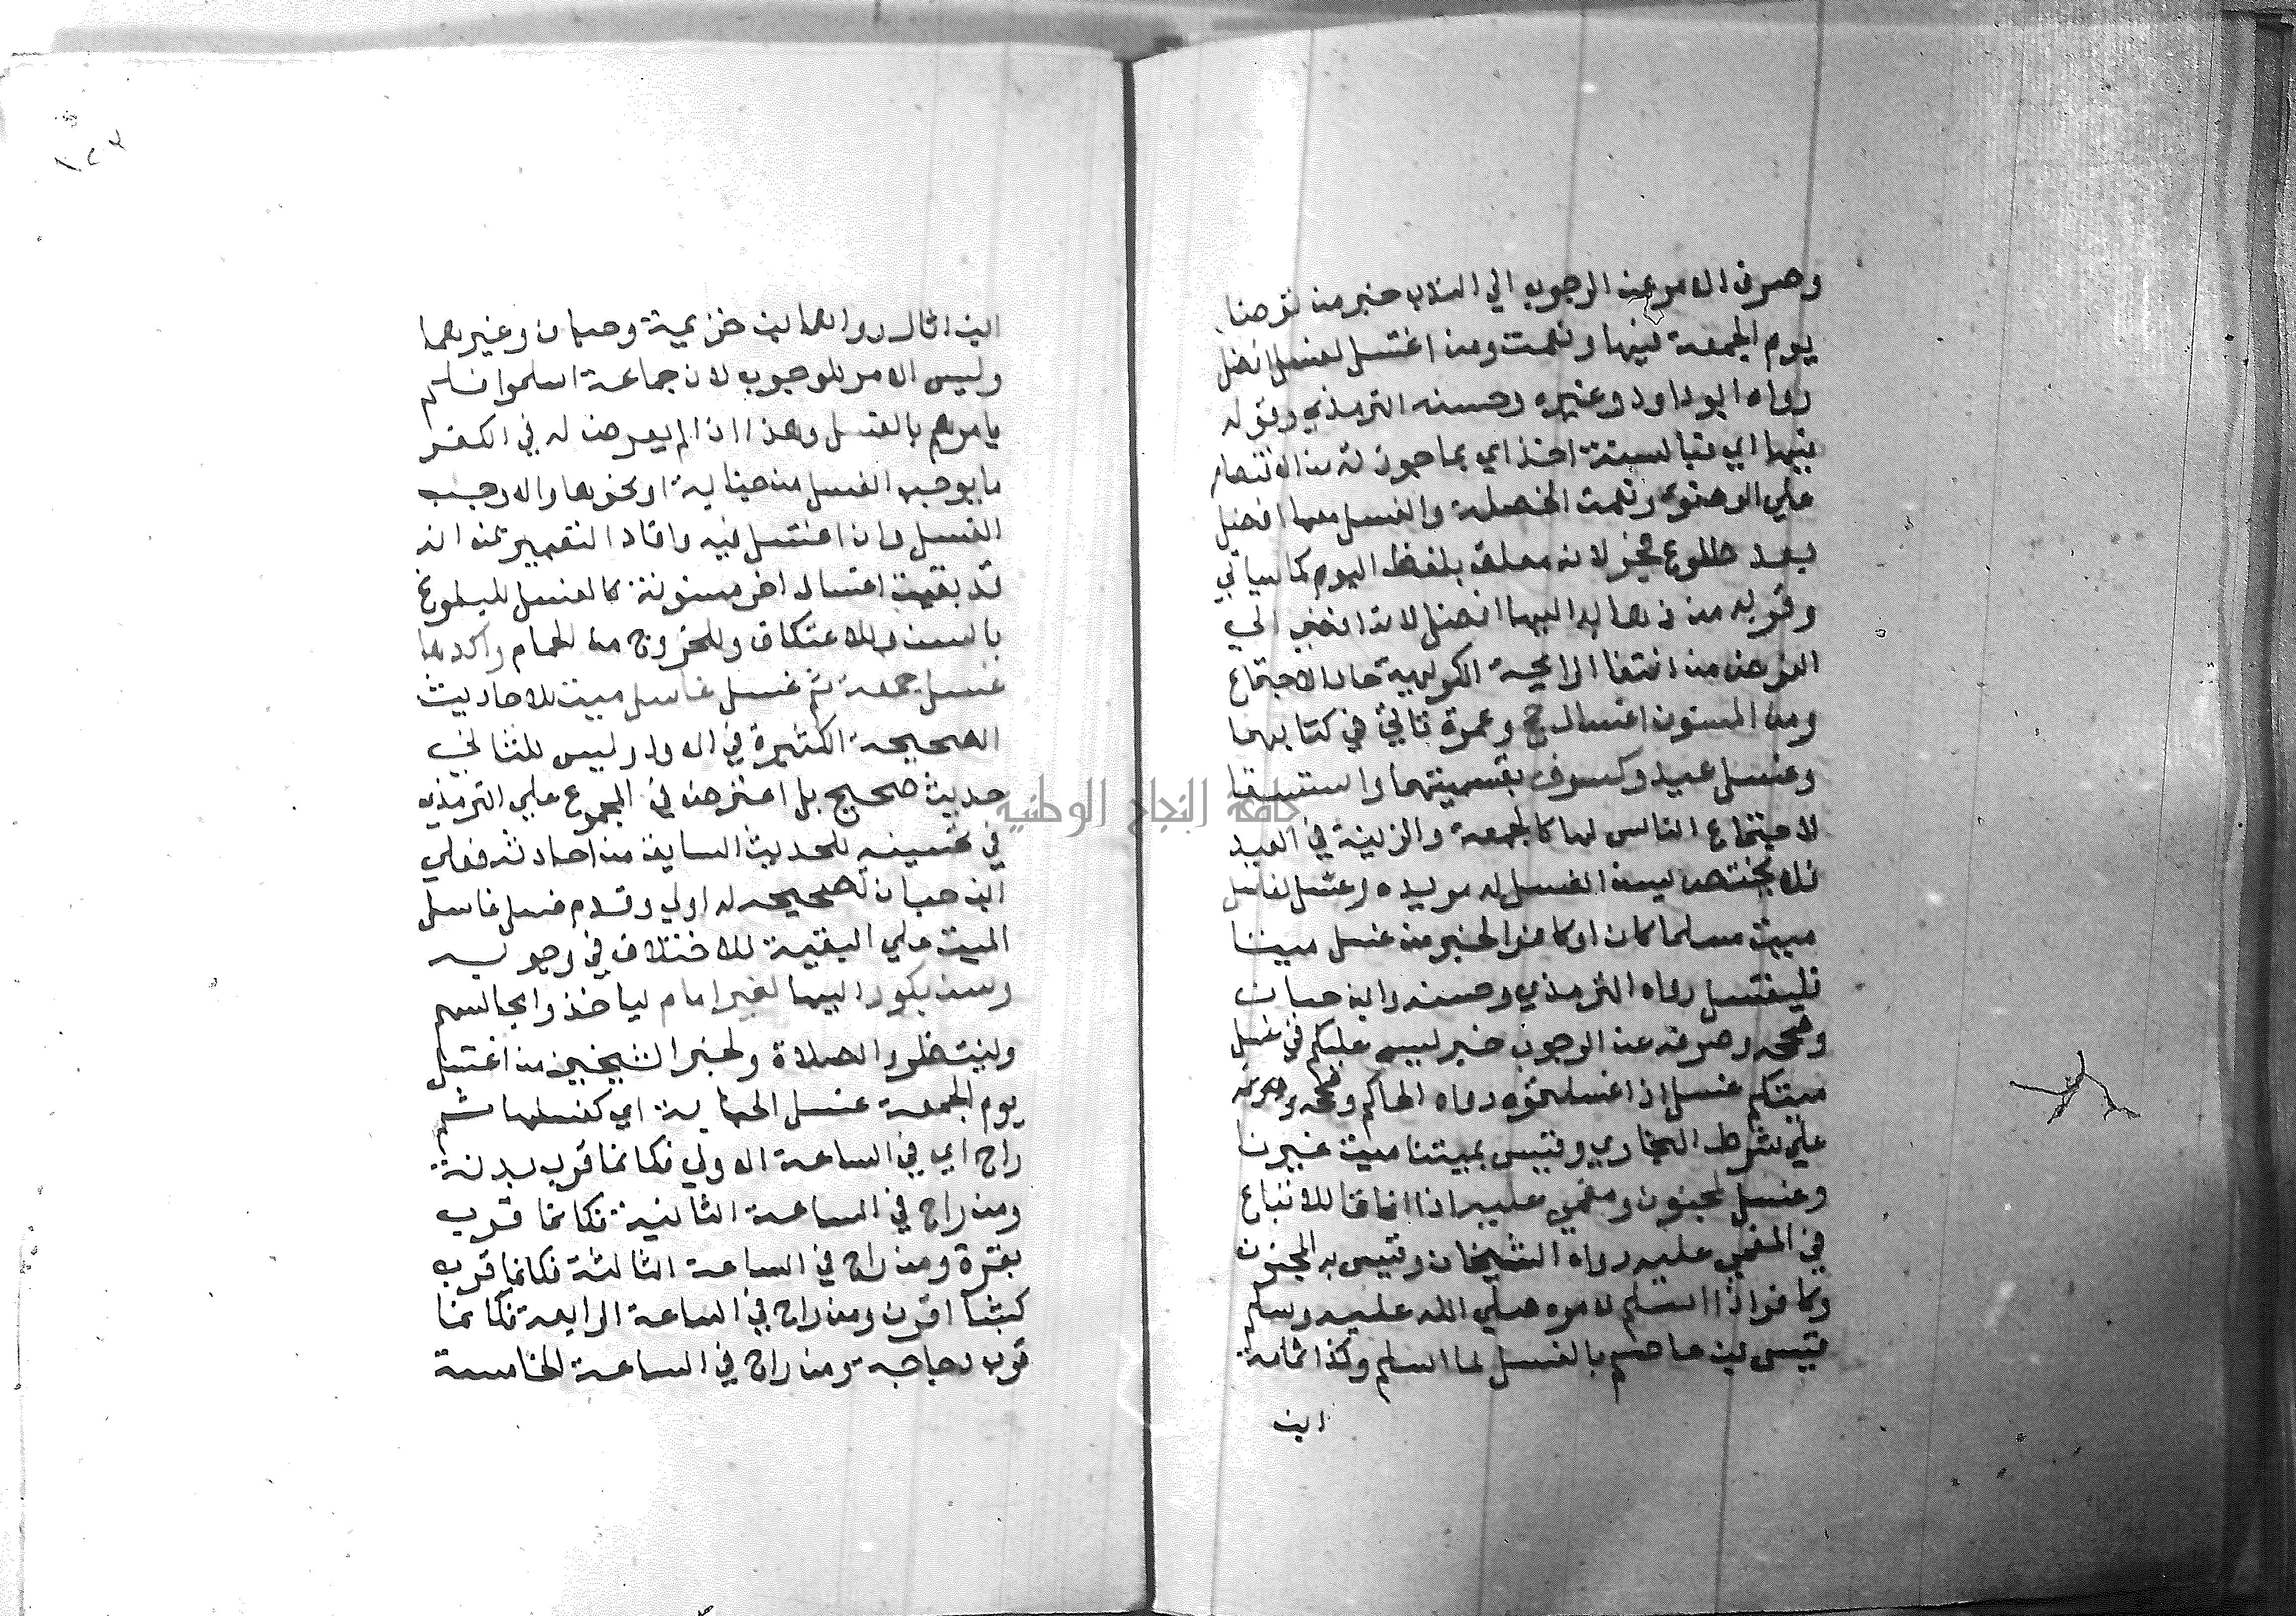 وصرف الامر عن الوجوب الي الندب خبر من توضا
يوم الجمعة فبها ونعمت ومن اغتسل فالغسل افضل
رواه ابو داود وغيره وحسنه الترمذي وقوله
فبها اي فبالسنة اخذ اي بما جوزته من الاقتصار
علي الوضوء ونعمت الخصلة والغسل معها افضل
بعد طلوع فجر لانه معلق بلفظ اليوم كما سياتي
وقربه من ذهابه اليها افضل لانه افضي الي
الغرض من انتفا الرايحة الكريهة حال الاجتماع
ومن المسنون اغسال حج وعمرة تاتي في كتابهما
وغسل عيد وكسوف بقسميهما واستسقا
لاجتماع الناس لها كالجمعة والزينة في العيد
فلا يختص بسن الغسل له مريده وغسل لغاسل
ميت مسلما كان او كافرا لخبر من غسل ميتا
فليغتسل رواه الترمذي وحسنه وابن حبان
وصححه وصرفه عن الوجوب خبر ليس عليكم في غسل
ميتكم غسل اذا غسلتموه رواه الحاكم وصححه
علي شرط البخاري وقيس بميتنا ميت غيرنا
وغسل لمجنون ومغمي عليه اذا افاقا للاتباع
في المغمي عليه رواه الشيخان وقيس به المجنون
وكافر اذا اسلم لامره صلي الله عليه وسلم
قيس بن عاصم بالغسل لما اسلم وكذا ثمامة
ابن
١٢٣
ابن اثال رواهما ابن خزيمة وحبان وغيرهما
وليس الامر للوجوب لان جماعة اسلموا فلم
يامرهم بالغسل وهذا اذا لم يعرض له في الكفر
ما يوجب الغسل من جنابة او نحوها والا وجب
الغسل وان اغتسل فيه وافاد التعبير بمن انه
قد بقيت اغسال اخر مسنونة كالغسل للبلوغ
بالسن وللاعتكاف وللخروج من الحمام واكدها
غسل جمعة ثم غسل غاسل ميت للاحاديث
الصحيحة الكثيرة في الاول وليس للثاني
حديث صحيح بل اعترض في المجموع علي الترمذي
في تحسينه للحديث السابق من احاديثه فعلي
ابن حبان تصحيحه له اولي وقدم غسل غاسل
الميت علي البقية للاختلاف في وجوبه
وسن بكور اليها لغير امام لياخذوا مجالسهم
ولينتظروا الصلاة ولخبر الشيخين من اغتسل
يوم الجمعة غسل الجنابة اي كغسلها ثم
راح اي في الساعة الاولي فكانما قرب بدنة
ومن راح في الساعة الثانية فكانما قرب
بقرة ومن راح في الساعة الثالثة فكانما قرب
كبشا اقرن ومن راح في الساعة الرابعة فكانما
قرب دجاجة ومن راح في الساعة الخامسة
جامعة النجاح الوطنية